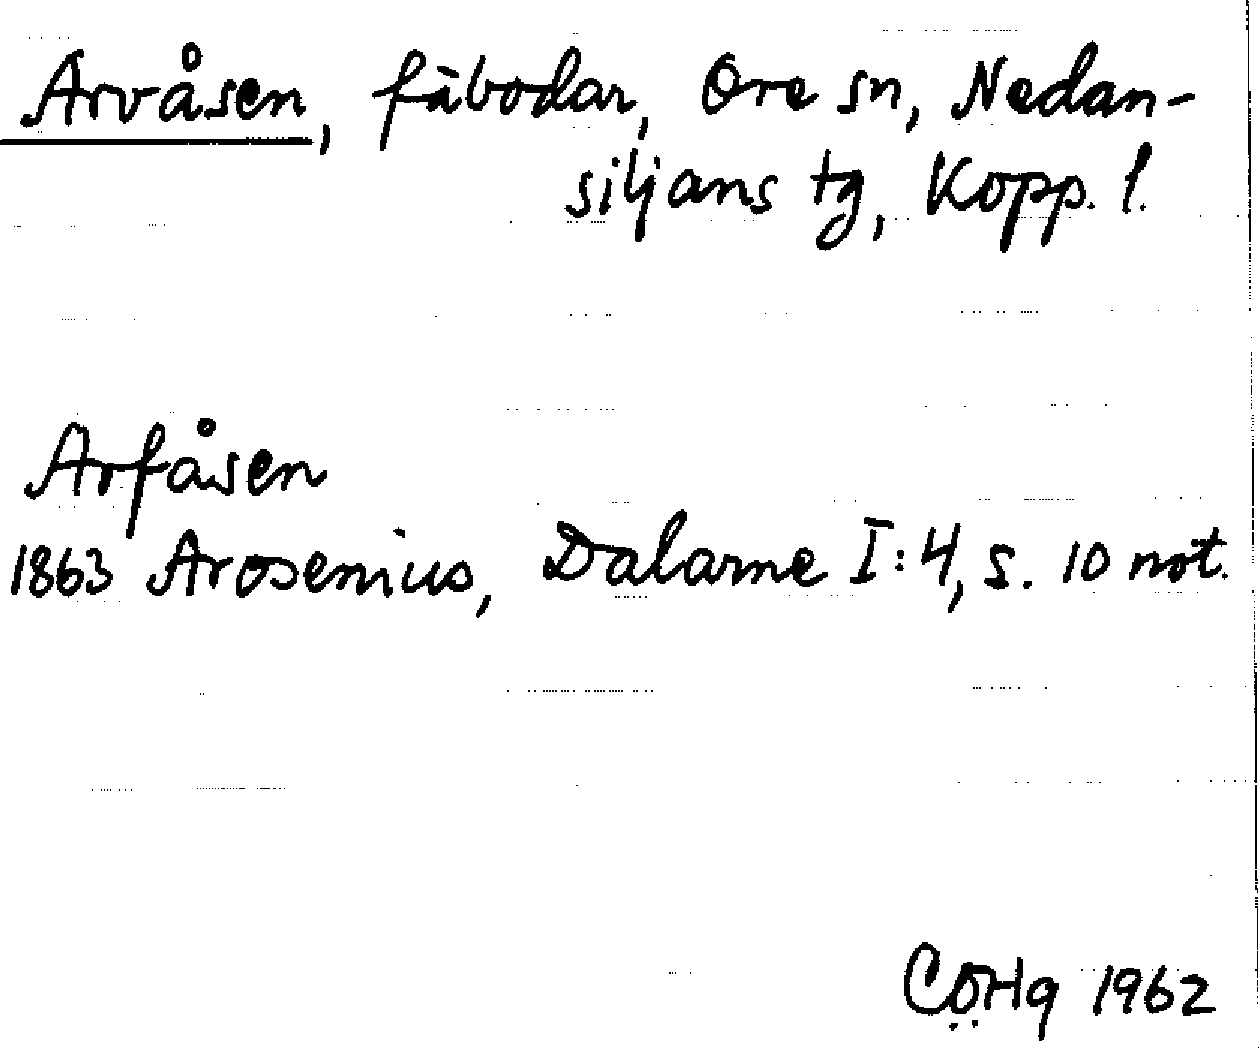 Arvåsen, fäbodar, Ore sn, Nedan-
siljans tg, Kopp. l.
Arfåsen
1863 Arosenius, Dalarne I:4, s. 10 not.
CÖHg 1962